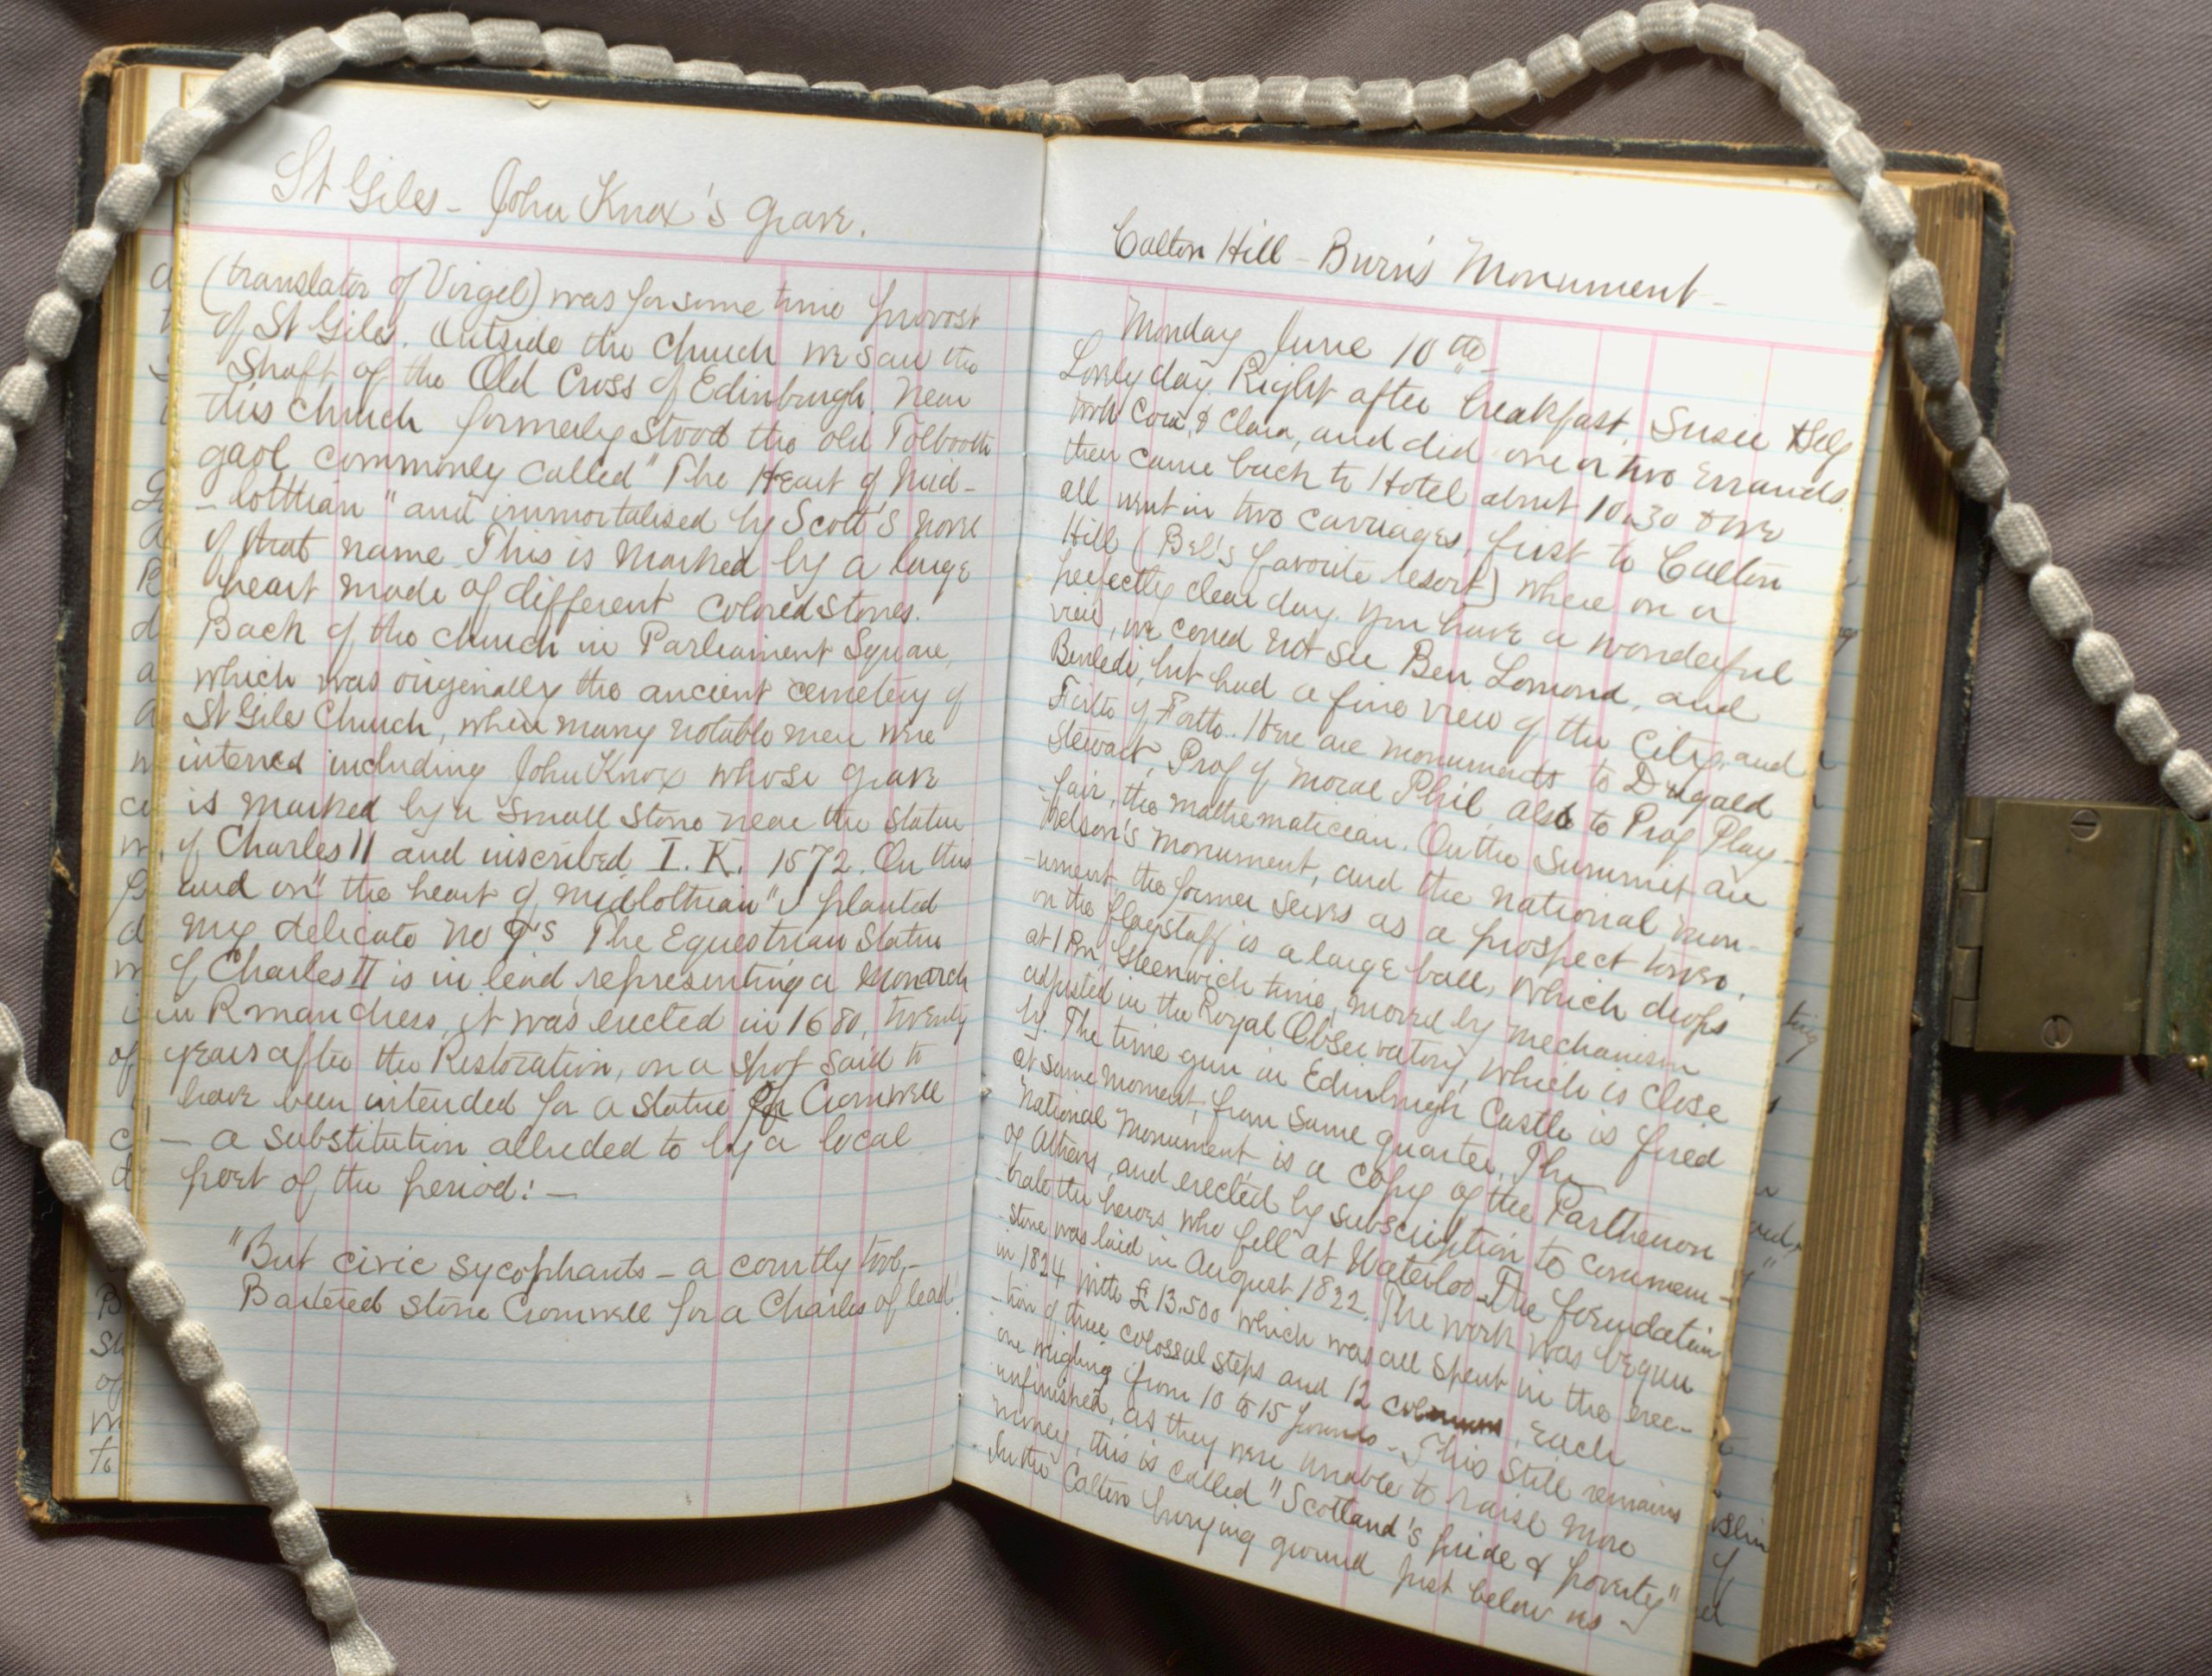 St Giles - John Knox's Grave.
(translator of Virgel) was for some time provost
of St Giles. Outside the church we saw the
Shaft of the Old Cross of Edinburgh. Near
this church formerly stood the old Tolbooth
gaol, commonly called "The Heart of Mid-
-lothian" and immortalised by Scott's novel
of that name. This is marked by a large
heart made of different colored stones.
Back of the church in Parliament Square,
which was originally the ancient cemetery of
St Giles Church, where many notable men were
interred including John Knox whose grave
is marked by a small stone near the statue
of Charles II and inscribed I. K. 1572. On this
and on "the heart of Midlothian" I planted
my delicate No 7's The Equestrian Statue
of Charles II is in lead, representing a monarch
in Roman dress, it was erected in 1680, twenty
years after the Restoration, on a spot said to
have been intended for a statue for Cromwell
— a substitution alluded to by a local
poet of the period: —
"But civic sycophants - a courtly tool,-
Bartered stone Cromwell for a Charles of lead.'
Calton Hill - Burn's Monument -
Monday June 10th -
Lovely day. Right after breakfast, Susie & self
took Cora, & Clara, and did one or two errands.
then came back to Hotel about 10.30 & we
all went in two carriages, first to Calton
Hill (Bel's favorite resort) where on a
perfectly clear day you have a wonderful
view, we could not see Ben Lomond, and
Benledi, but had a fine view of the City, and
Firth of Forth. Here are monuments to Dugald
Stewart, Prof of Moral Phil, also to Prof Play-
-fair, the mathematician. On the Summit are
Nelson's monument, and the national mon-
-ument, the former serves as a prospect tower.
on the flagstaff is a large ball, which drops
at 1 P.m. Greenwich time, moved by mechanism
adjusted in the Royal Observatory, which is close
by. The time gun in Edinburgh Castle is fired
at same moment, from same quarter. The
National Monument is a copy of the Parthenon
of Athens, and erected by subscription to commem-
-orate the heroes who fell at Waterloo. The foundation
stone was laid in August 1822. The work was begun
in 1824 with £13.500 which was all spent in the erec-
-tion of three colossal steps and 12 columns, each
one weighing from 10 to 15 pounds - This still remains
unfinished, as they were unable to raise more
money, this is called "Scotland's pride & poverty"
In the Calton burying ground just below us -